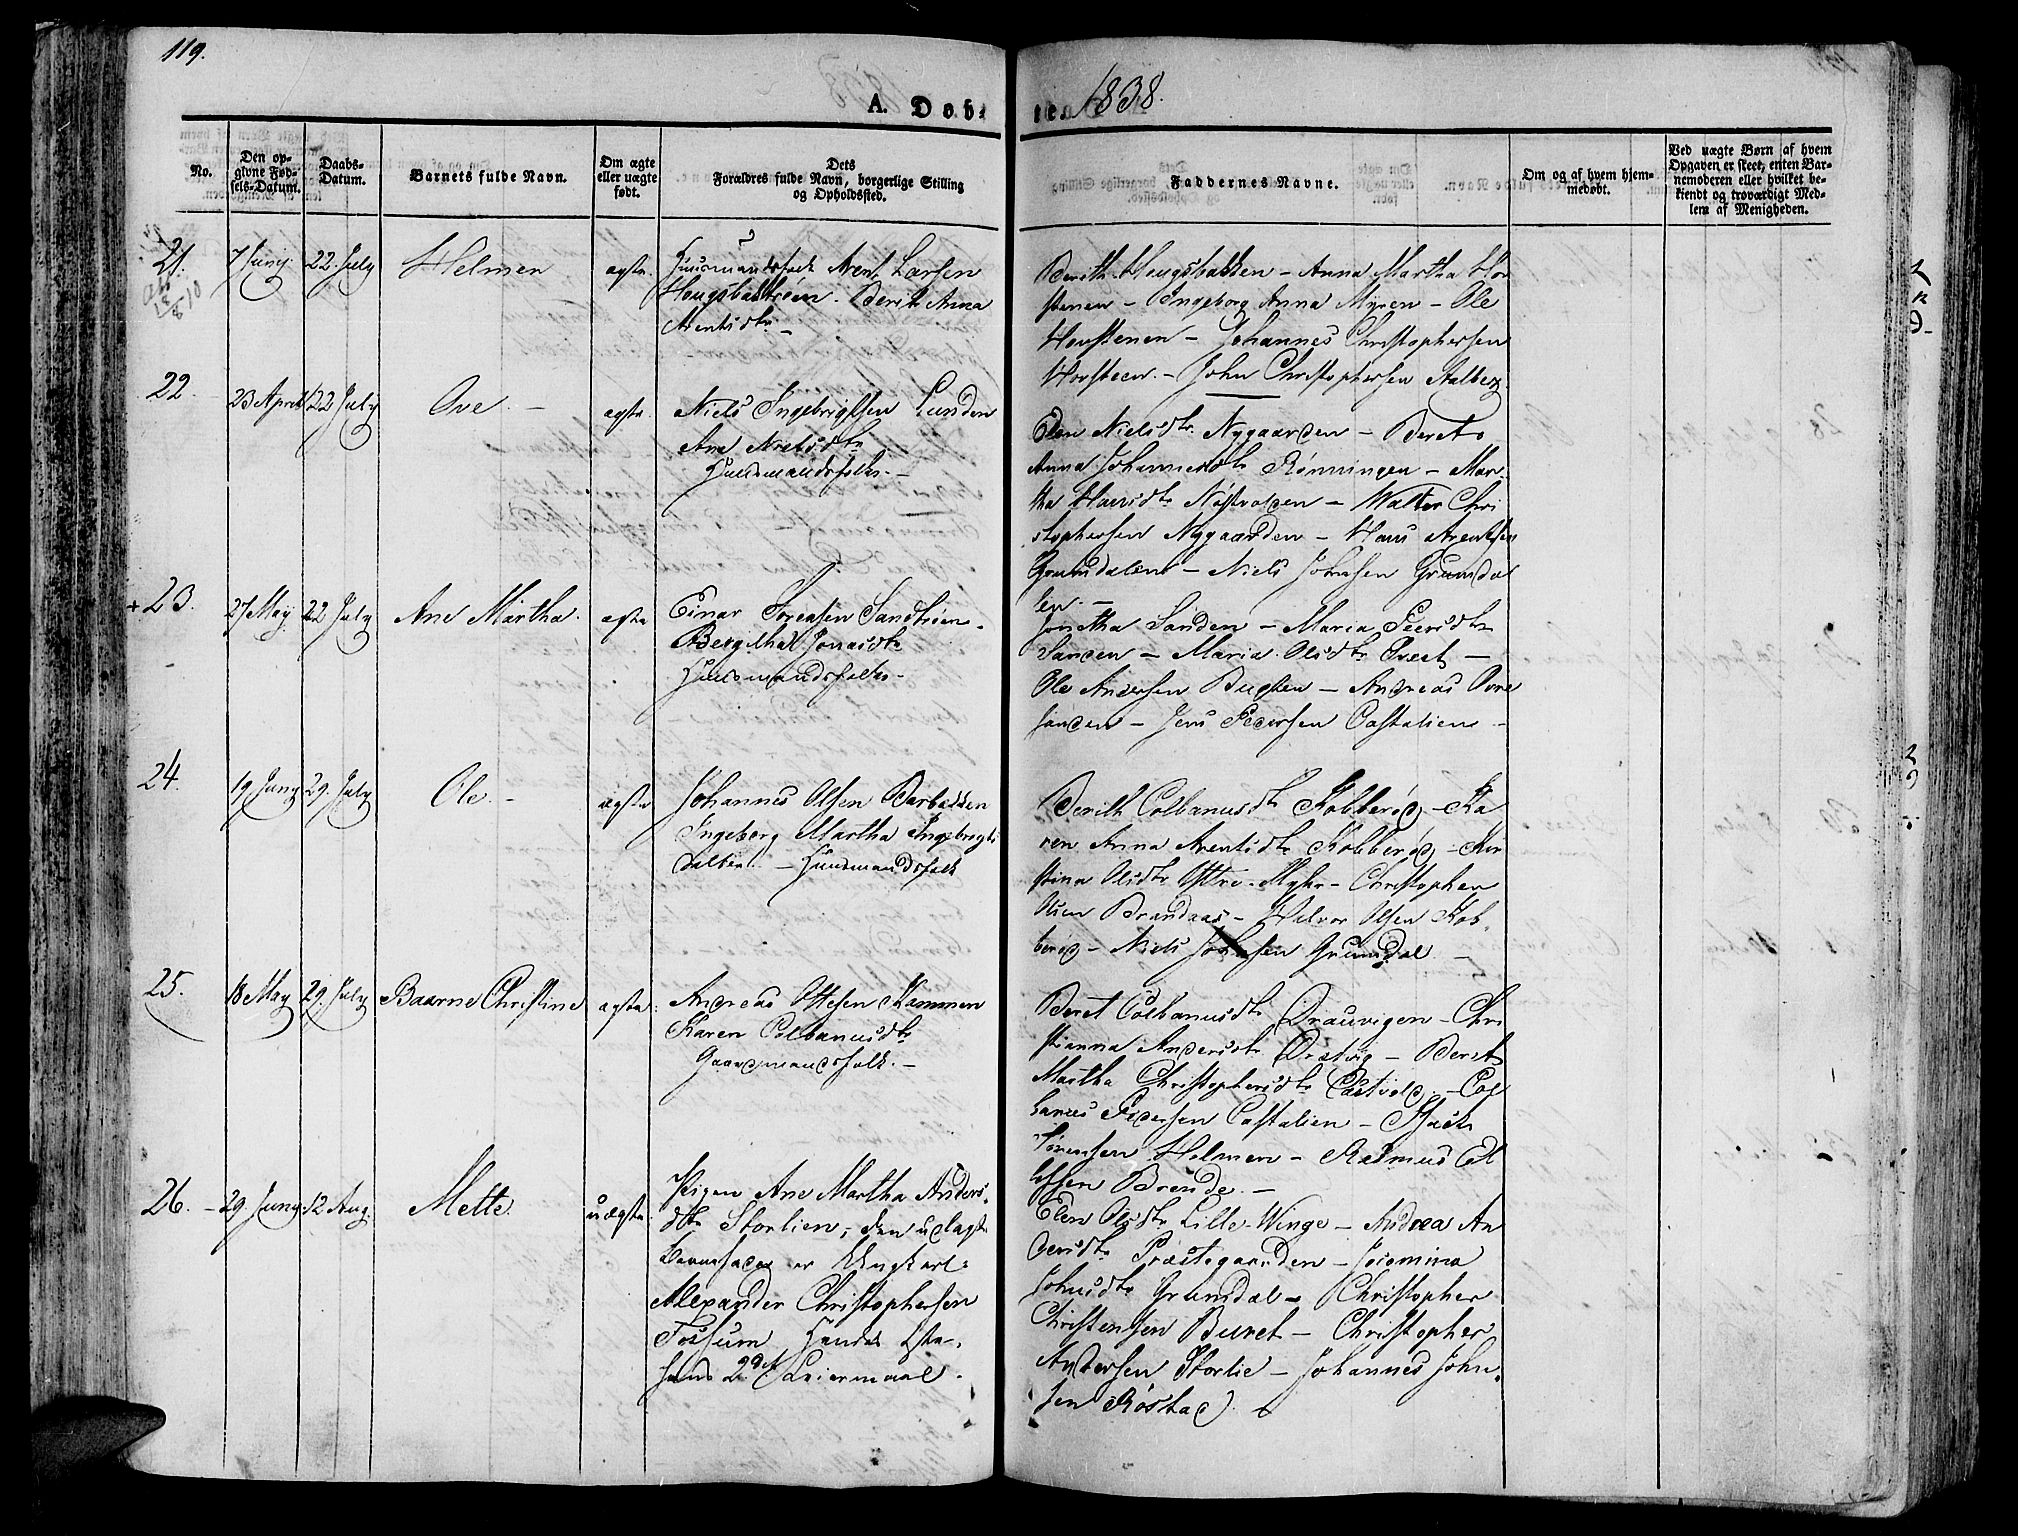 119.
1838.
A. Døbte.
No.
Den op-
givne Fød-
sels-Datum.
Daabs-
Datum.
Barnets fulde Navn.
Om ægte
eller uægte
født.
Dets
Forældres fulde Navn, borgerlige Stilling
og Opholdssted.
Faddernes Navne.
Om og af hvem hjem-
medøbt.
Ved uægte Børn af hvem
Opgaven er skeet, enten Bar-
nemoderen eller hvilket be-
kiendt og troværdigt Med-
lem af Menigheden.
21.
7 Juny.
22. July
Helmer
ægte.
Huusmandsfolk Arent Larsen
Berit Anna
Arentsdtr. –
Berith – Anna Martha Hov-
stenen – Ingeborg Anna Myren – Ole
Hovstenen – Johannes Christophersen
Hovsteen. – John Christophersen Aalberg
22.
23 April
22 July
Ove. –
ægte.
Niels Ingebrigtsen Lunden
Ane Nielsdtr
Huusmandsfolk. –
Elen Nielsdtr. Nygaarden – Beret
Anna Johannesdtr Rønningen – Mar-
tha Hansdtr – Walter Chri
stophersen Nygaarden – Hans Arentsen
Grundalen – Niels Johnsen Grunda
len. –
+ 23.
27 May
22 July
Ane Martha.
ægte
Einar Sørensen Sandtrøen.
Bergithal Jonasdtr
Huusmandsfolk –
Sanden – Maria Peersdtr
Sanden – Maria Olsdtr –
Ole Andersen – Andreas Øvre
sanden – Jens Pedersen Castalien –
24.
19 Juny
29. July
Ole. –
ægte
Johannes Olsen
Ingeborg Martha Ingebrigts
datter. – Huusmandsfolk
Berith Colbanusdtr Kobberød – Ka
ren Anna Arentsdtr Kobberød – Kir
stina Olsdtr Østre-Myhr – Christopher
Olsen Brandaas – Halvor Olsen Kob-
berød – Niels Johnsen Grundal –
25.
18 May
29. July
Baarne Christine
ægte.
Andreas Ottesen Kammen
Karen Colbanusdtr
Gaardmandsfolk. –
Beret Colbanusdtr Drauvigen – Chri
stianna Andersdtr – Beret
Martha Christophersdtr – Col
banus Pedersen Castalien – Isach
Sørensen Helmen – Rasmus El
lefsen Brende. –
26. –
29. Juny
12 Aug.
Mette
uægte.
Pigen Ane Martha Anders-
dtr Storlien, den udlagte
Barnefader er Ungkarl
Alexander Christophersen
Fossum Hendes 1ste
hans 2det Leiermaal.
Elen Olsdtr Lille-Winge – Andrea An
dersdtr Præstegaarden –
Johnsdtr Grundal – Christopher
Christensen Buret – Christopher
Andersen Storlie – Johannes John-
sen Røstad.